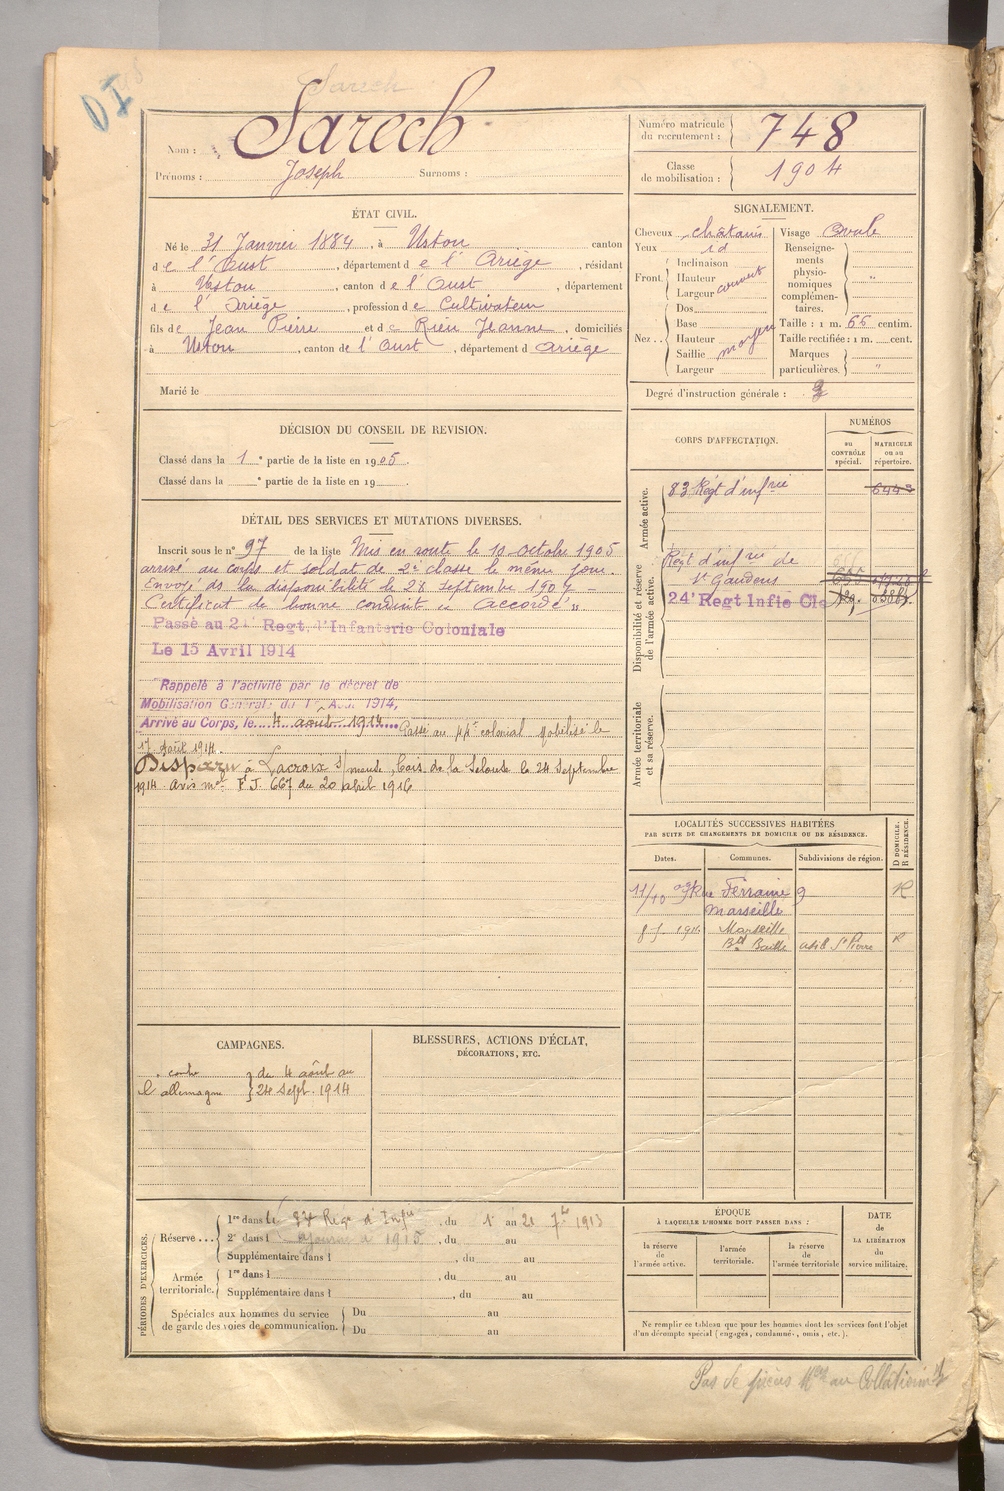 Sarech
DI
Nom : Sarech
Prénoms : Joseph Surnoms :
Numéro matricule du recrutement : 748
Classe de mobilisation : 1904
ÉTAT CIVIL.
Né le 31 Janvier 1884, à Ustou canton
de l'Oust, département de l'Ariège, résidant
à Ustou, canton de l'Oust, département
de l'Ariège, profession de Cultivateur
fils de Jean Pierre et de Rieu Jeanne, domiciliés
à Ustou, canton de l'Oust, département d Ariège
Marié le
SIGNALEMENT.
Cheveux châtains
Yeux id
Front Inclinaison
Hauteur couvert
Largeur
Nez .. Dos
Base
Hauteur moyen
Saillie
Largeur
Visage Ovale
Renseigne-
ments
physio-
nomiques
complémen-
taires. "
Taille : 1 m. 66 centim.
Taille rectifiée : 1 m. cent.
Marques
particulières. "
Degré d'instruction générale :
DÉCISION DU CONSEIL DE REVISION.
Classé dans la 1e partie de la liste en 1905.
Classé dans la e partie de la liste en 19
DÉTAIL DES SERVICES ET MUTATIONS DIVERSES.
Inscrit sous le n° 97 de la liste Mis en route le 10 octobre 1905
arrivé au corps et soldat de 2e classe le même jour.
Envoyé ds la disponibilité le 28 septembre 1907 -
Certificat de bonne conduite " Accordé ".
Passé au 24e Regt d'Infanterie Coloniale
Le 15 Avril 1914
Rappelé à l'activité par le décret de
Mobilisation Générale du 1er Août 1914,
Arrivé au Corps, le 4 août 1914 Passé au 44e colonial Mobilisé le
17 Août 1914.
Disparu à Lacroix s/ meuse, bois de la Selouse le 24 Septembre
1914. Avis mel F.J. 667 du 20 abril 1916
CORPS D'AFFECTATION.
NUMÉROS
au CONTRÔLE spécial.
MATRICULE ou au répertoire.
Armée active.
83 Régt d'infrie
Disponibilité et réserve de l'armée active.
Régt d'infrie de
St Gaudens
24e Regt Infie Cle
Armée territoriale et sa réserve.
LOCALITÉS SUCCESSIVES HABITÉES
PAR SUITE DE CHANGEMENTS DE DOMICILE OU DE RÉSIDENCE.
D DOMICILE.
R RÉSIDENCE.
Dates. Communes. Subdivisions de région.
11/10 09 Rue Ferraine 9 R
Marseille
1914 Marseille
Bd Baille asile St Pierre R
CAMPAGNES.
contre l'allemagne } du 4 août au
24 Sept. 1914
BLESSURES, ACTIONS D'ÉCLAT,
DÉCORATIONS, ETC.
PÉRIODES D'EXERCICES.
Réserve ... 1re dans le 24 Regt d'Infie, du 1er au 21 7bre 1913
2e dans l ajourné à 1915, du au
Supplémentaire dans l , du au
Armée territoriale. 1re dans l , du au
Supplémentaire dans l , du au
Spéciales aux hommes du service
de garde des voies de communication. Du au
Du au
ÉPOQUE
À LAQUELLE L'HOMME DOIT PASSER DANS :
la réserve de l'armée active.
l'armée territoriale.
la réserve de l'armée territoriale
DATE
de
LA LIBÉRATION
du
service militaire.
Ne remplir ce tableau que pour les hommes dont les services font l'objet
d'un décompte spécial (engagés, condamnés, omis, etc.).
Pas de pièces